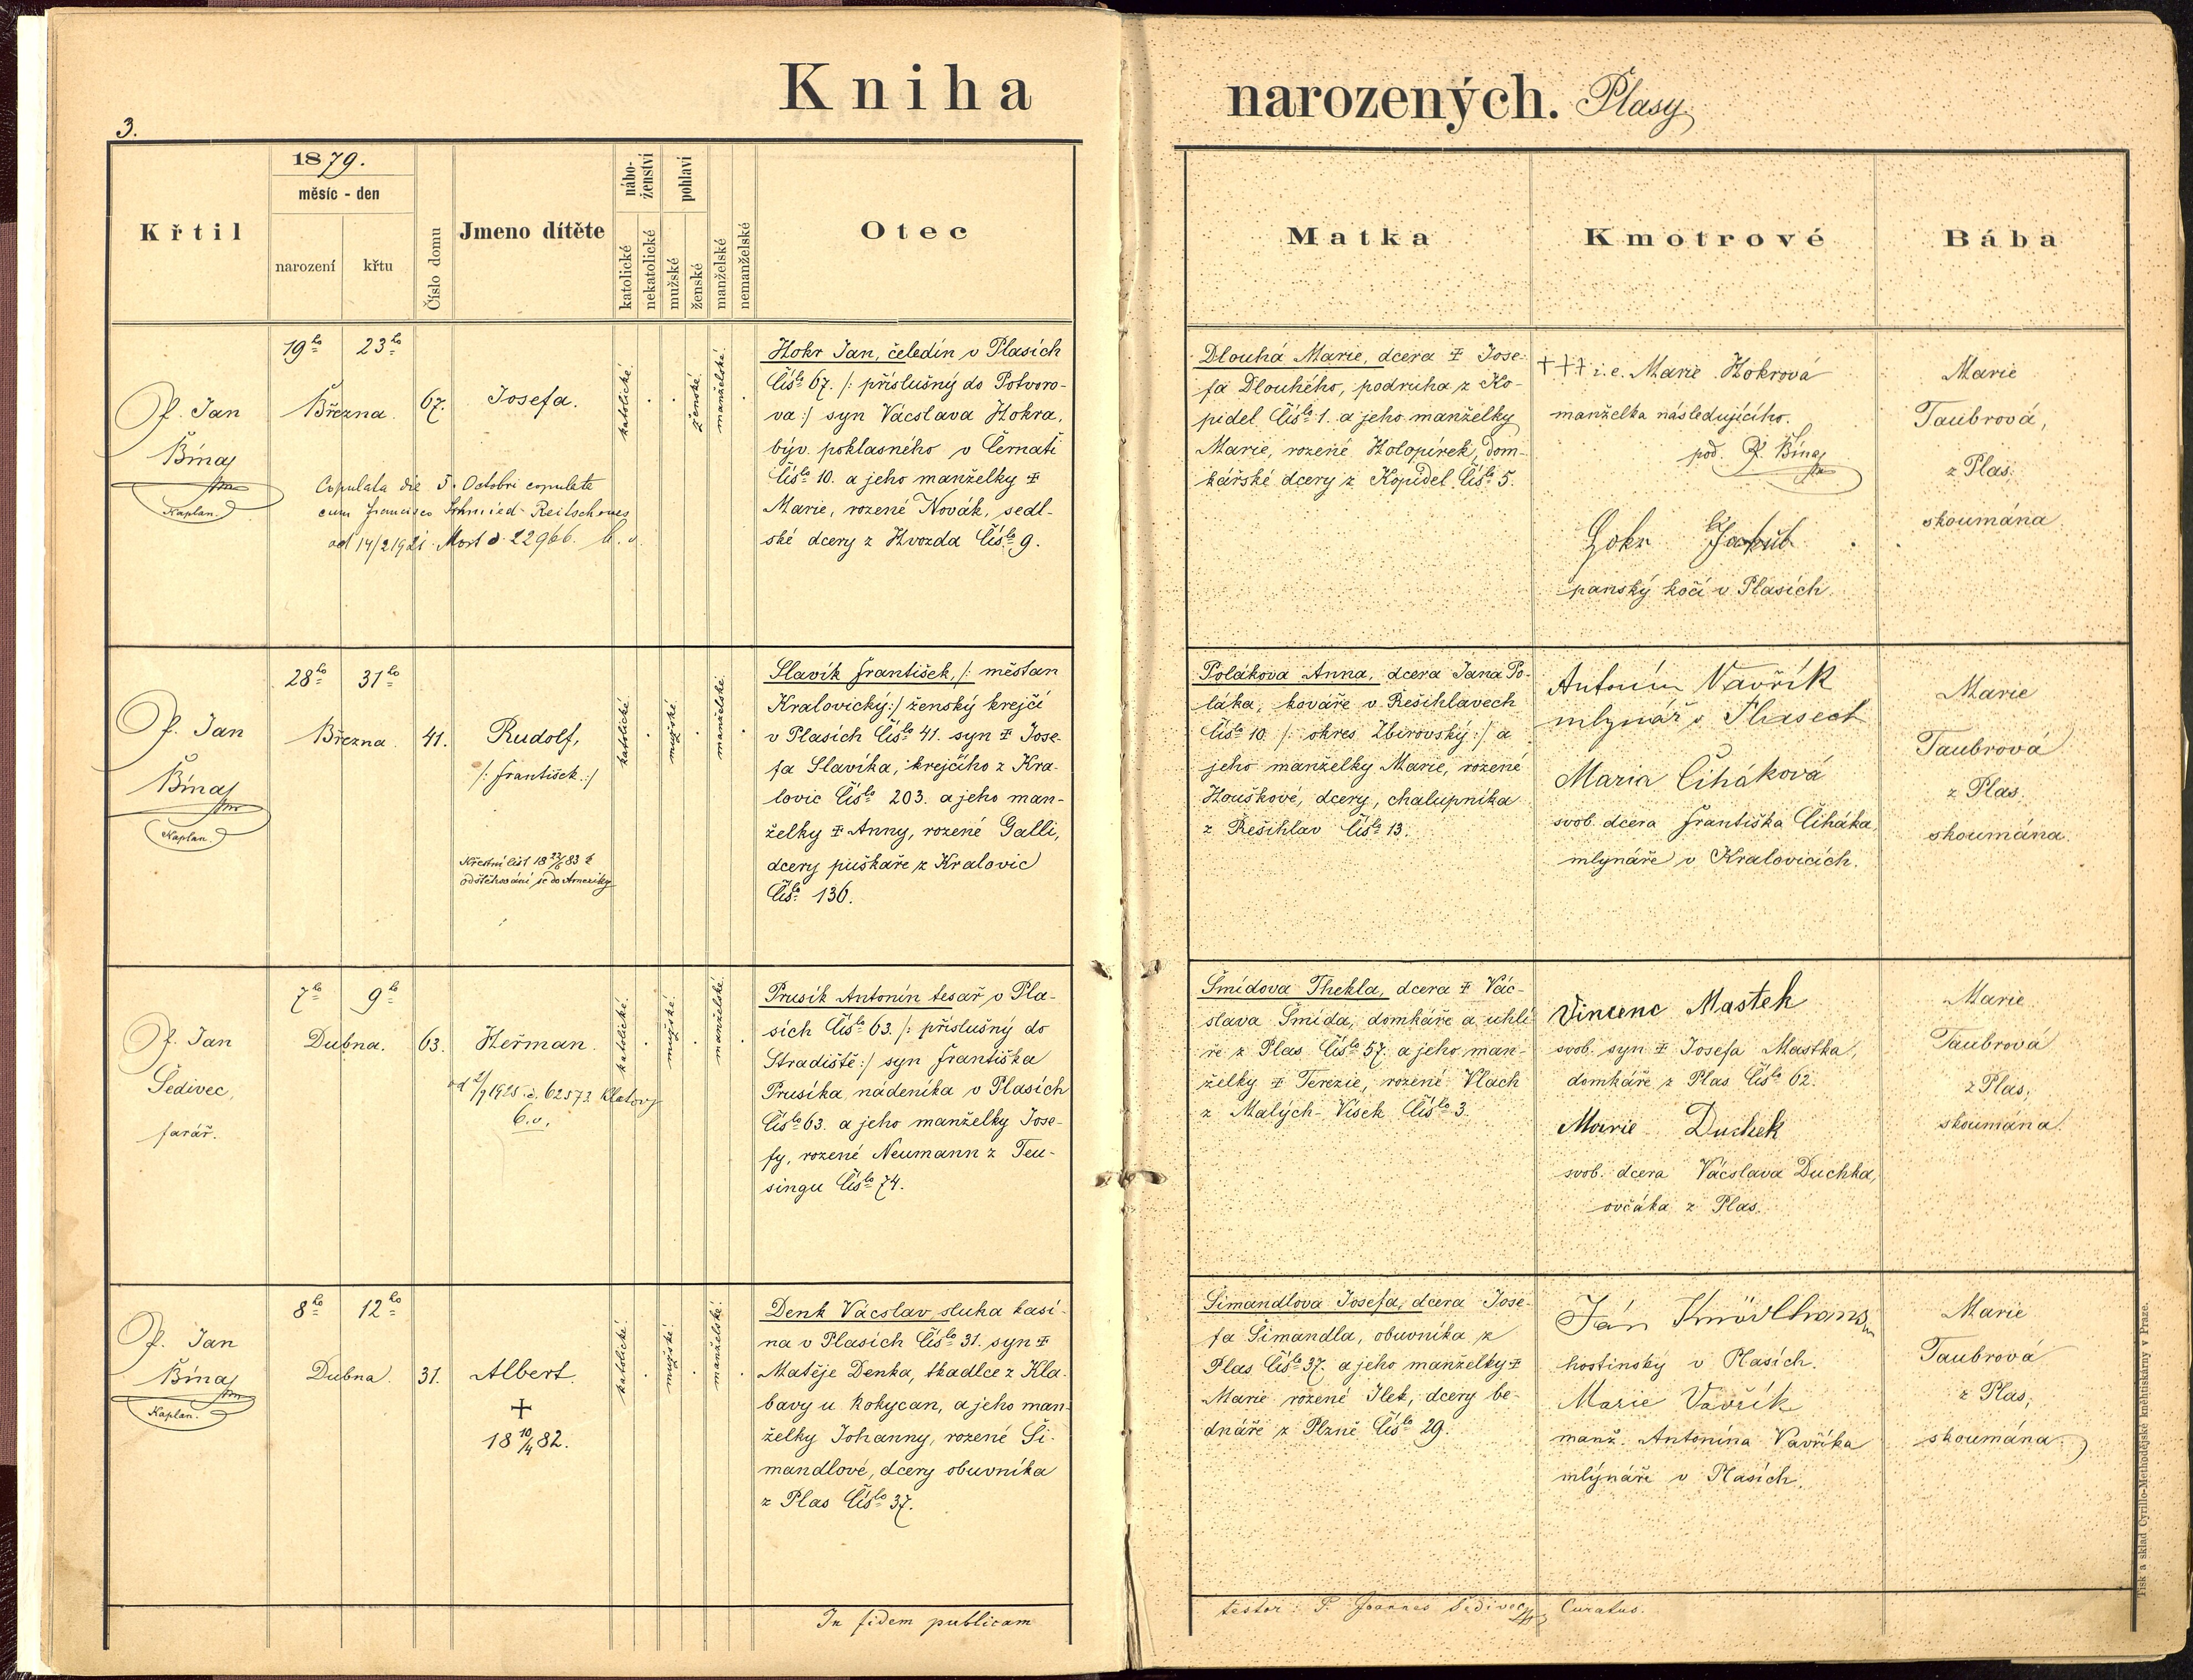 Kniha
narozených. Plasy
3.
1879.
měsíc - den
Křtil
narození
křtu
Číslo domu
Jmeno dítěte
nábo-
ženství
katolické
nekatolické
pohlaví
mužské
ženské
manželské
nemanželské
Otec
Matka
Kmotrové
Bába
P. Jan
Bínaj
Kaplan.
19ho
23ho
Března.
67.
Josefa.
katolické.
ženské.
manželské.
Copulata die 5. Octobri copulete
cum Francisco
od 14/2 1921
22966.
Hokr Jan, čeledín v Plasích
Čislo 67. /: příslušný do Potvoro-
va :/ syn Vácslava Hokra,
býv. poklasného v Černati
Čislo 10. a jeho manželky ‡
Marie, rozené Novák, sedl-
ské dcery z Hvozda Čislo 9.
Dlouhá Marie, dcera ‡ Jose-
fa Dlouhého, podruha z Ko-
pidel Čislo 1. a jeho manželky
Marie, rozené Holopírek, dom-
kářské dcery z Kopidel Čislo 5.
††† i.e. Marie Hokrová
manželka následujícího.
pod. P. Bínaj
Hokr Jakub
panský kočí v Plasích.
Marie
Taubrová,
z Plas,
skoumána.
P. Jan
Bínaj
Kaplan.
28ho
31ho
Března.
41.
Rudolf,
/: František :/
Křestní list 18 83
odstěhování se do Ameriky
katolické.
mužské.
manželské.
Slavík František, /: měšťan
Kralovický :/ ženský krejčí
v Plasích Čislo 41. syn ‡ Jose-
fa Slavíka, krejčího z Kra-
lovic Čislo 203. a jeho man-
želky ‡ Anny, rozené Galli,
dcery puškaře z Kralovic
Čislo 136.
Polákova Anna, dcera Jana Po-
láka, kováře v Řešihlavech
Čislo 10. /: okres Zbirovský :/ a
jeho manželky Marie, rozené
Houškové, dcery, chalupníka
z Řešihlav Čislo 13.
Antonín Vavřík
mlynář v Plasech
Maria Čiháková
svob. dcera Františka Čiháka,
mlynáře v Kralovicích.
Marie
Taubrová
z Plas,
skoumána.
P. Jan
Šedivec,
farář.
7ho
9ho
Dubna.
63.
Heřman.
1925 č. 62573 Klatovy
katolické.
mužské.
manželské.
Prusík Antonín tesař v Pla-
sích Čislo 63. /: příslušný do
Stradiště :/ syn Františka
Prusíka, nádeníka v Plasích
Čislo 63. a jeho manželky Jose-
fy, rozené Neumann z Teu-
singu Čislo 74.
Šmídova Thekla, dcera ‡ Vác-
slava Šmída, domkáře a uhlí-
ře z Plas Čislo 57. a jeho man-
želky ‡ Terezie, rozené Vlach
z Malých-Vísek Čislo 3.
Vincenc Mastek
svob. syn ‡ Josefa Mastka,
domkáře z Plas Čislo 62.
Marie Duchek
svob. dcera Vácslava Duchka,
ovčáka z Plas.
Marie
Taubrová
z Plas,
skoumána.
P. Jan
Bínaj
Kaplan.
8ho
12ho
Dubna.
31.
Albert.
†
18 10/4 82.
katolické.
mužské.
manželské.
Denk Vácslav, sluha kasí-
na v Plasích Čislo 31. syn ‡
Matěje Denka, tkadlce z Kla-
bavy u Rokycan, a jeho man-
želky Johanny, rozené Ši-
mandlové, dcery obuvníka
z Plas Čislo 37.
Šimandlova Josefa, dcera Jose-
fa Šimandla, obuvníka z
Plas Čislo 37. a jeho manželky ‡
Marie rozené Ilek, dcery be-
dnáře z Plzně Čislo 29.
Ján
hostinský v Plasích.
Marie Vavřík
manž. Antonína Vavříka
mlýnáře v Plasích.
Marie
Taubrová
z Plas,
skoumána.
In fidem publicam
testor: P. Joannes Šedivec, Curatus.
Tisk a sklad Cyrillo-Methodějské knehtiskárny v Praze.